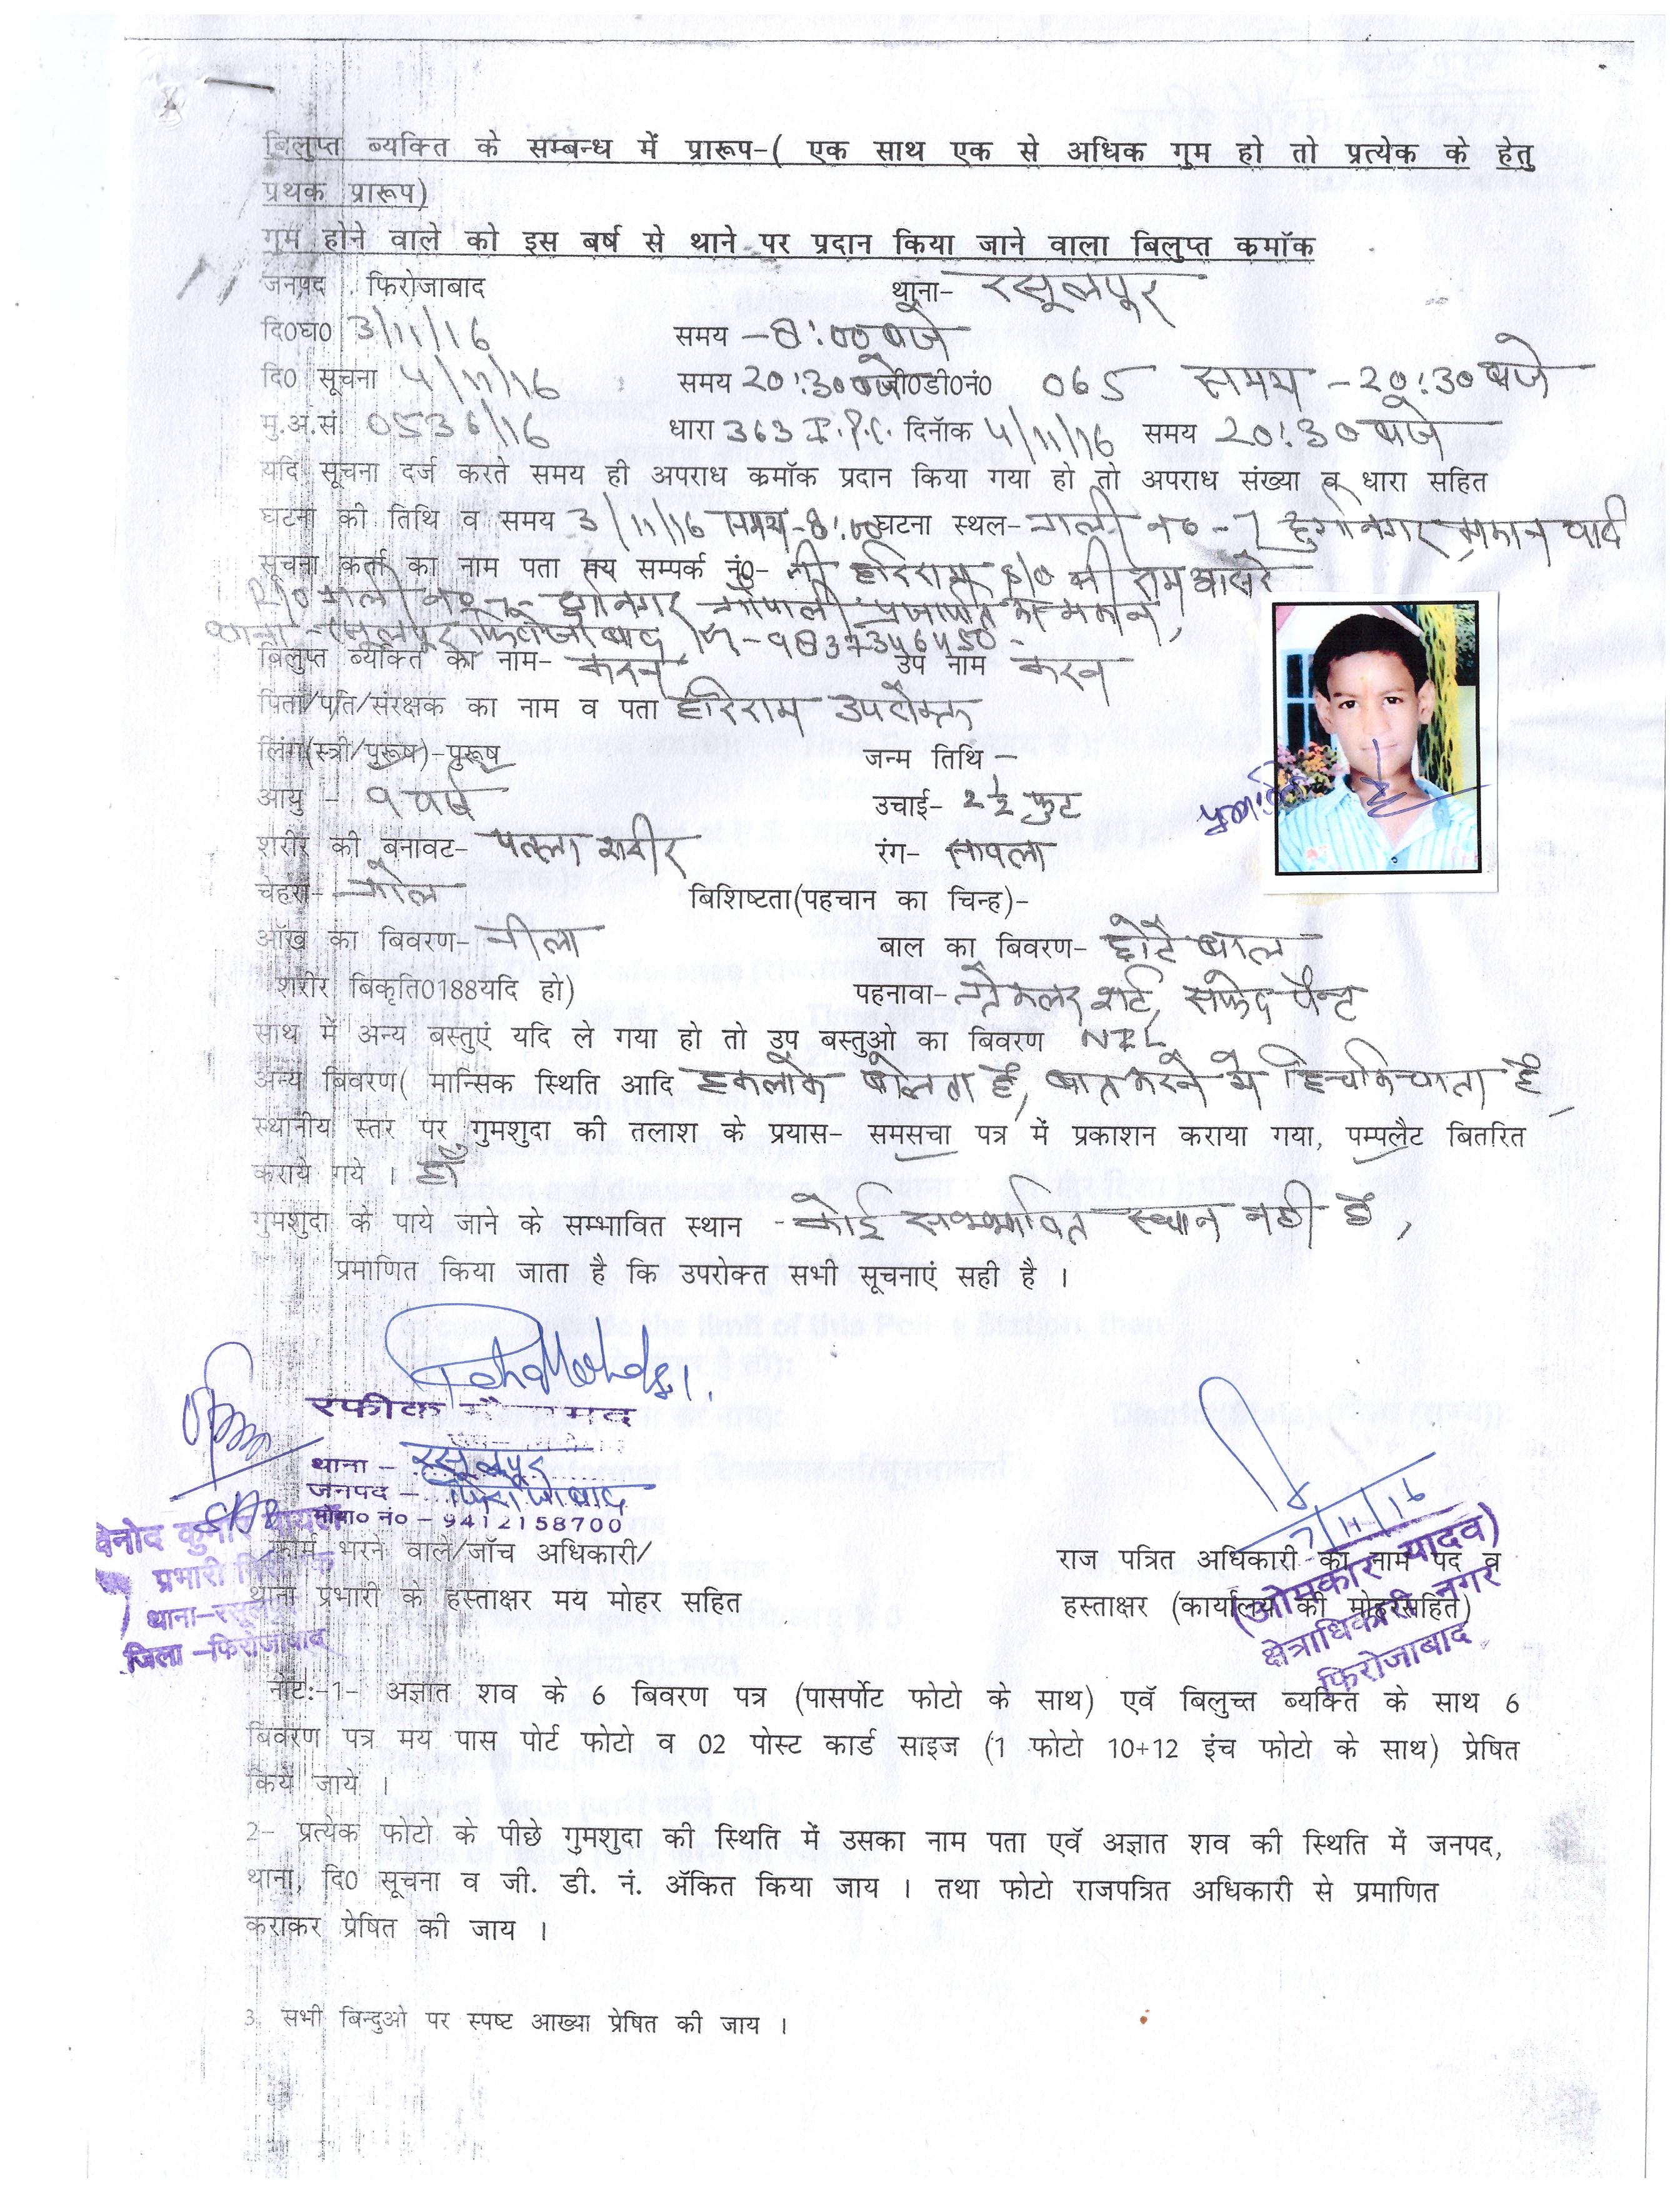 बिलुप्त ब्यक्ति के सम्बन्ध में प्रारूप-( एक साथ एक से अधिक गुम हो तो प्रत्येक के हेतु
प्रथक प्रारूप)
गुम होने वाले को इस बर्ष से थाने पर प्रदान किया जाने वाला बिलुप्त कमॉक
जनपद फिरोजाबाद थाना- रसूलपुर
दि0घ0 3/11/16 समय - 8:00 बजे
दि0 सूचना 4/11/16 समय 20:30 बजे जी0डी0नं0 065 समय - 20:30 बजे
मु.अ.सं. 0536/16 धारा 363 I.P.C. दिनॉक 4/11/16 समय 20:30 बजे
यदि सूचना दर्ज करते समय ही अपराध कमॉक प्रदान किया गया हो तो अपराध संख्या व धारा सहित
घटना की तिथि व समय 3/11/16 समय-8:00 घटना स्थल- गली न0-7 दुर्गानगर मकान
सूचना कर्ता का नाम पता मय सम्पर्क नं0- श्री हरिराम S/O श्री राम आसरे
R/O गली न0 दुर्गानगर गोपाली प्रजापति का मकान,
थाना - रसूलपुर फिरोजाबाद
बिलुप्त ब्यक्ति का नाम- करन उप नाम करन
पिता/पति/संरक्षक का नाम व पता हरिराम उपरोक्त
लिंग(स्त्री/पुरूष)-पुरूष जन्म तिथि -
आयु - 9 वर्ष उचाई- 2 1/2 फुट
शरीर की बनावट- पतला शरीर रंग- सावला
चेहरा- गोल बिशिष्टता(पहचान का चिन्ह)-
ऑख का बिवरण- नीला बाल का बिवरण- छोटे बाल
शरीर बिकृति0188यदि हा) पहनावा- ग्रे कलर शर्ट, सफेद पैन्ट
साथ में अन्य बस्तुएं यदि ले गया हो तो उप बस्तुओ का बिवरण NIL
अन्य बिवरण( मान्सिक स्थिति आदि हकलाके बोलता है, बात करने मे हिचकिचाता है,
स्थानीय स्तर पर गुमशुदा की तलाश के प्रयास- समसचा पत्र में प्रकाशन कराया गया, पम्पलैट बितरित
कराये गये । हाँ
गुमशुदा के पाये जाने के सम्भावित स्थान - कोई सम्भावित स्थान नही है,
प्रमाणित किया जाता है कि उपरोक्त सभी सूचनाएं सही है ।
रफीक
थाना - रसूलपुर
जनपद - फिरोजाबाद
मोबा0 नं0 - 9412158700
7/11/16
कुमार
प्रभारी
थाना-रसूल
जिला -फिरोजाबाद
फार्म भरने वाले/जॉच अधिकारी/
थाना प्रभारी के हस्ताक्षर मय मोहर सहित
राज पत्रित अधिकारी का नाम पद व
हस्ताक्षर (कार्यालय की मोहरसहित)
(ओमकार यादव)
क्षेत्राधिकारी नगर
फिरोजाबाद
नोट:-1- अज्ञात शव के 6 बिवरण पत्र (पासर्पोट फोटो के साथ) एवॅ बिलुच्त ब्यक्ति के साथ 6
बिवरण पत्र मय पास पोर्ट फोटो व 02 पोस्ट कार्ड साइज (1 फोटो 10+12 इंच फोटो के साथ) प्रेषित
किये जाये ।
2- प्रत्येक फोटो के पीछे गुमशुदा की स्थिति में उसका नाम पता एवॅ अज्ञात शव की स्थिति में जनपद,
थाना, दि0 सूचना व जी. डी. नं. अॅकित किया जाय । तथा फोटो राजपत्रित अधिकारी से प्रमाणित
कराकर प्रेषित की जाय ।
3. सभी बिन्दुओ पर स्पष्ट आख्या प्रेषित की जाय ।